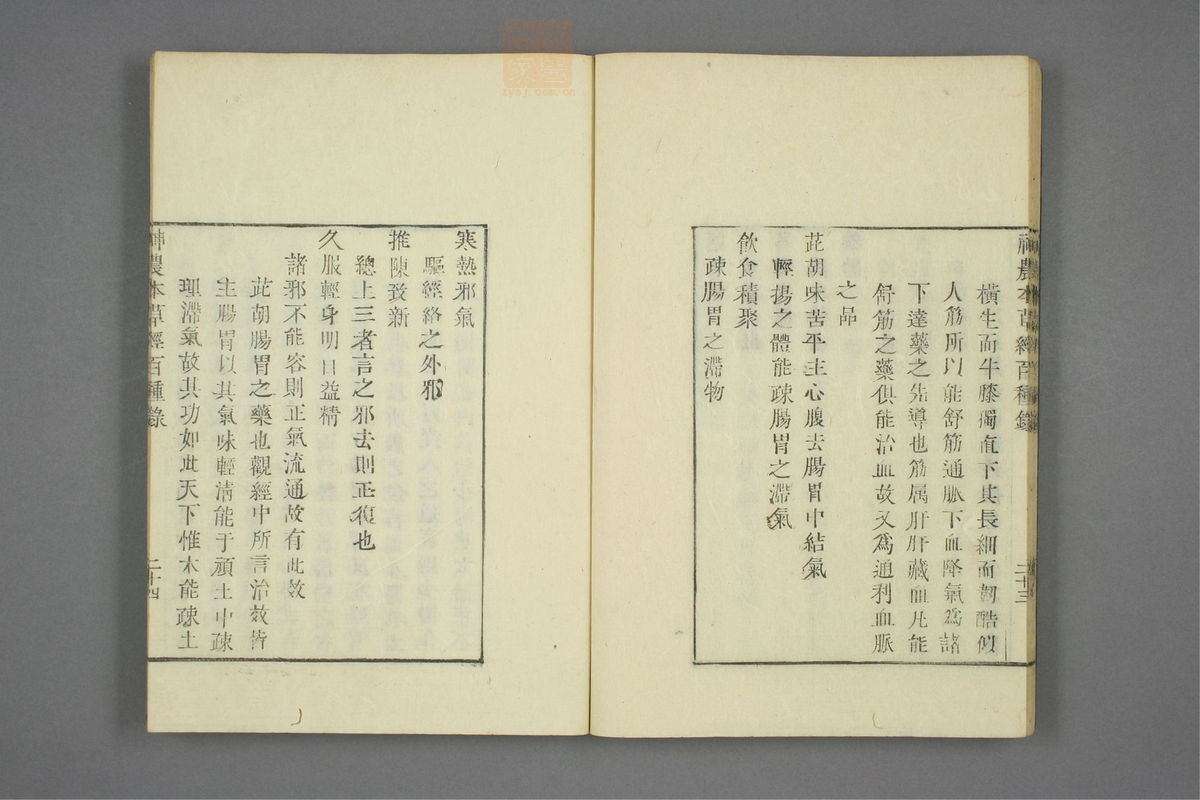 神農本草經百種錄
二十三
橫生而牛膝獨直下其長細而韌酷似
人筋所以能舒筋通脈下血降氣為諸
下達藥之先導也筋属肝肝藏血凡能
舒筋之藥俱能治血故又為通利血脈
之品
茈胡味苦平主心腹去腸胃中結氣
輕揚之體能疎腸胃之滯氣
飲食積聚
疎腸胃之滯物
寒熱邪氣
驅經絡之外邪
推陳致新
總上三者言之邪去則正復也
久服輕身明目益精
諸邪不能容則正氣流通故有此效
茈胡腸胃之藥也觀經中所言治效皆
主腸胃以其氣味輕清能于頑土中疎
理滯氣故其功如此天下惟木能疎土
神農本草經百種錄
二十四
zysj.com.cn